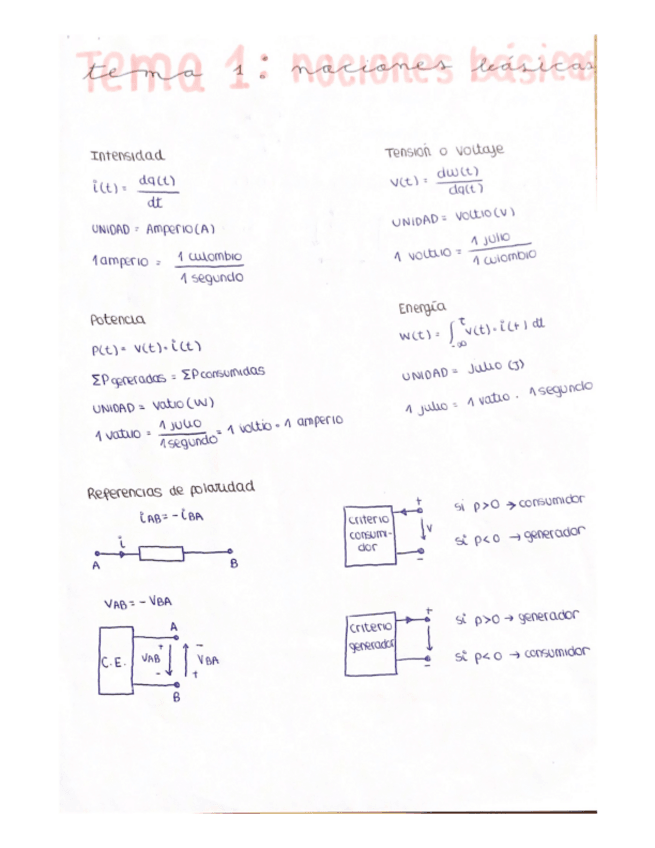 tema 1: nociones básicas
Intensidad
i(t) = dq(t)/dt
UNIDAD = Amperio (A)
1 amperio = 1 culombio / 1 segundo
Tensión o voltaje
v(t) = dw(t)/dq(t)
UNIDAD = Voltio (V)
1 voltio = 1 julio / 1 culombio
Potencia
p(t) = v(t) · i(t)
ΣP generadas = ΣP consumidas
UNIDAD = Vatio (W)
1 vatio = 1 julio / 1 segundo = 1 voltio · 1 amperio
Energía
w(t) = ∫_{-∞}^{t} v(t) · i(t) dt
UNIDAD = Julio (J)
1 julio = 1 vatio · 1 segundo
Referencias de polaridad
iAB = - iBA
i
A B
VAB = - VBA
A
C.E. + VAB - - VBA +
B
criterio
consumi-
dor
+
V
-
si p>0 → consumidor
si p<0 → generador
criterio
generador
+
-
si p>0 → generador
si p<0 → consumidor